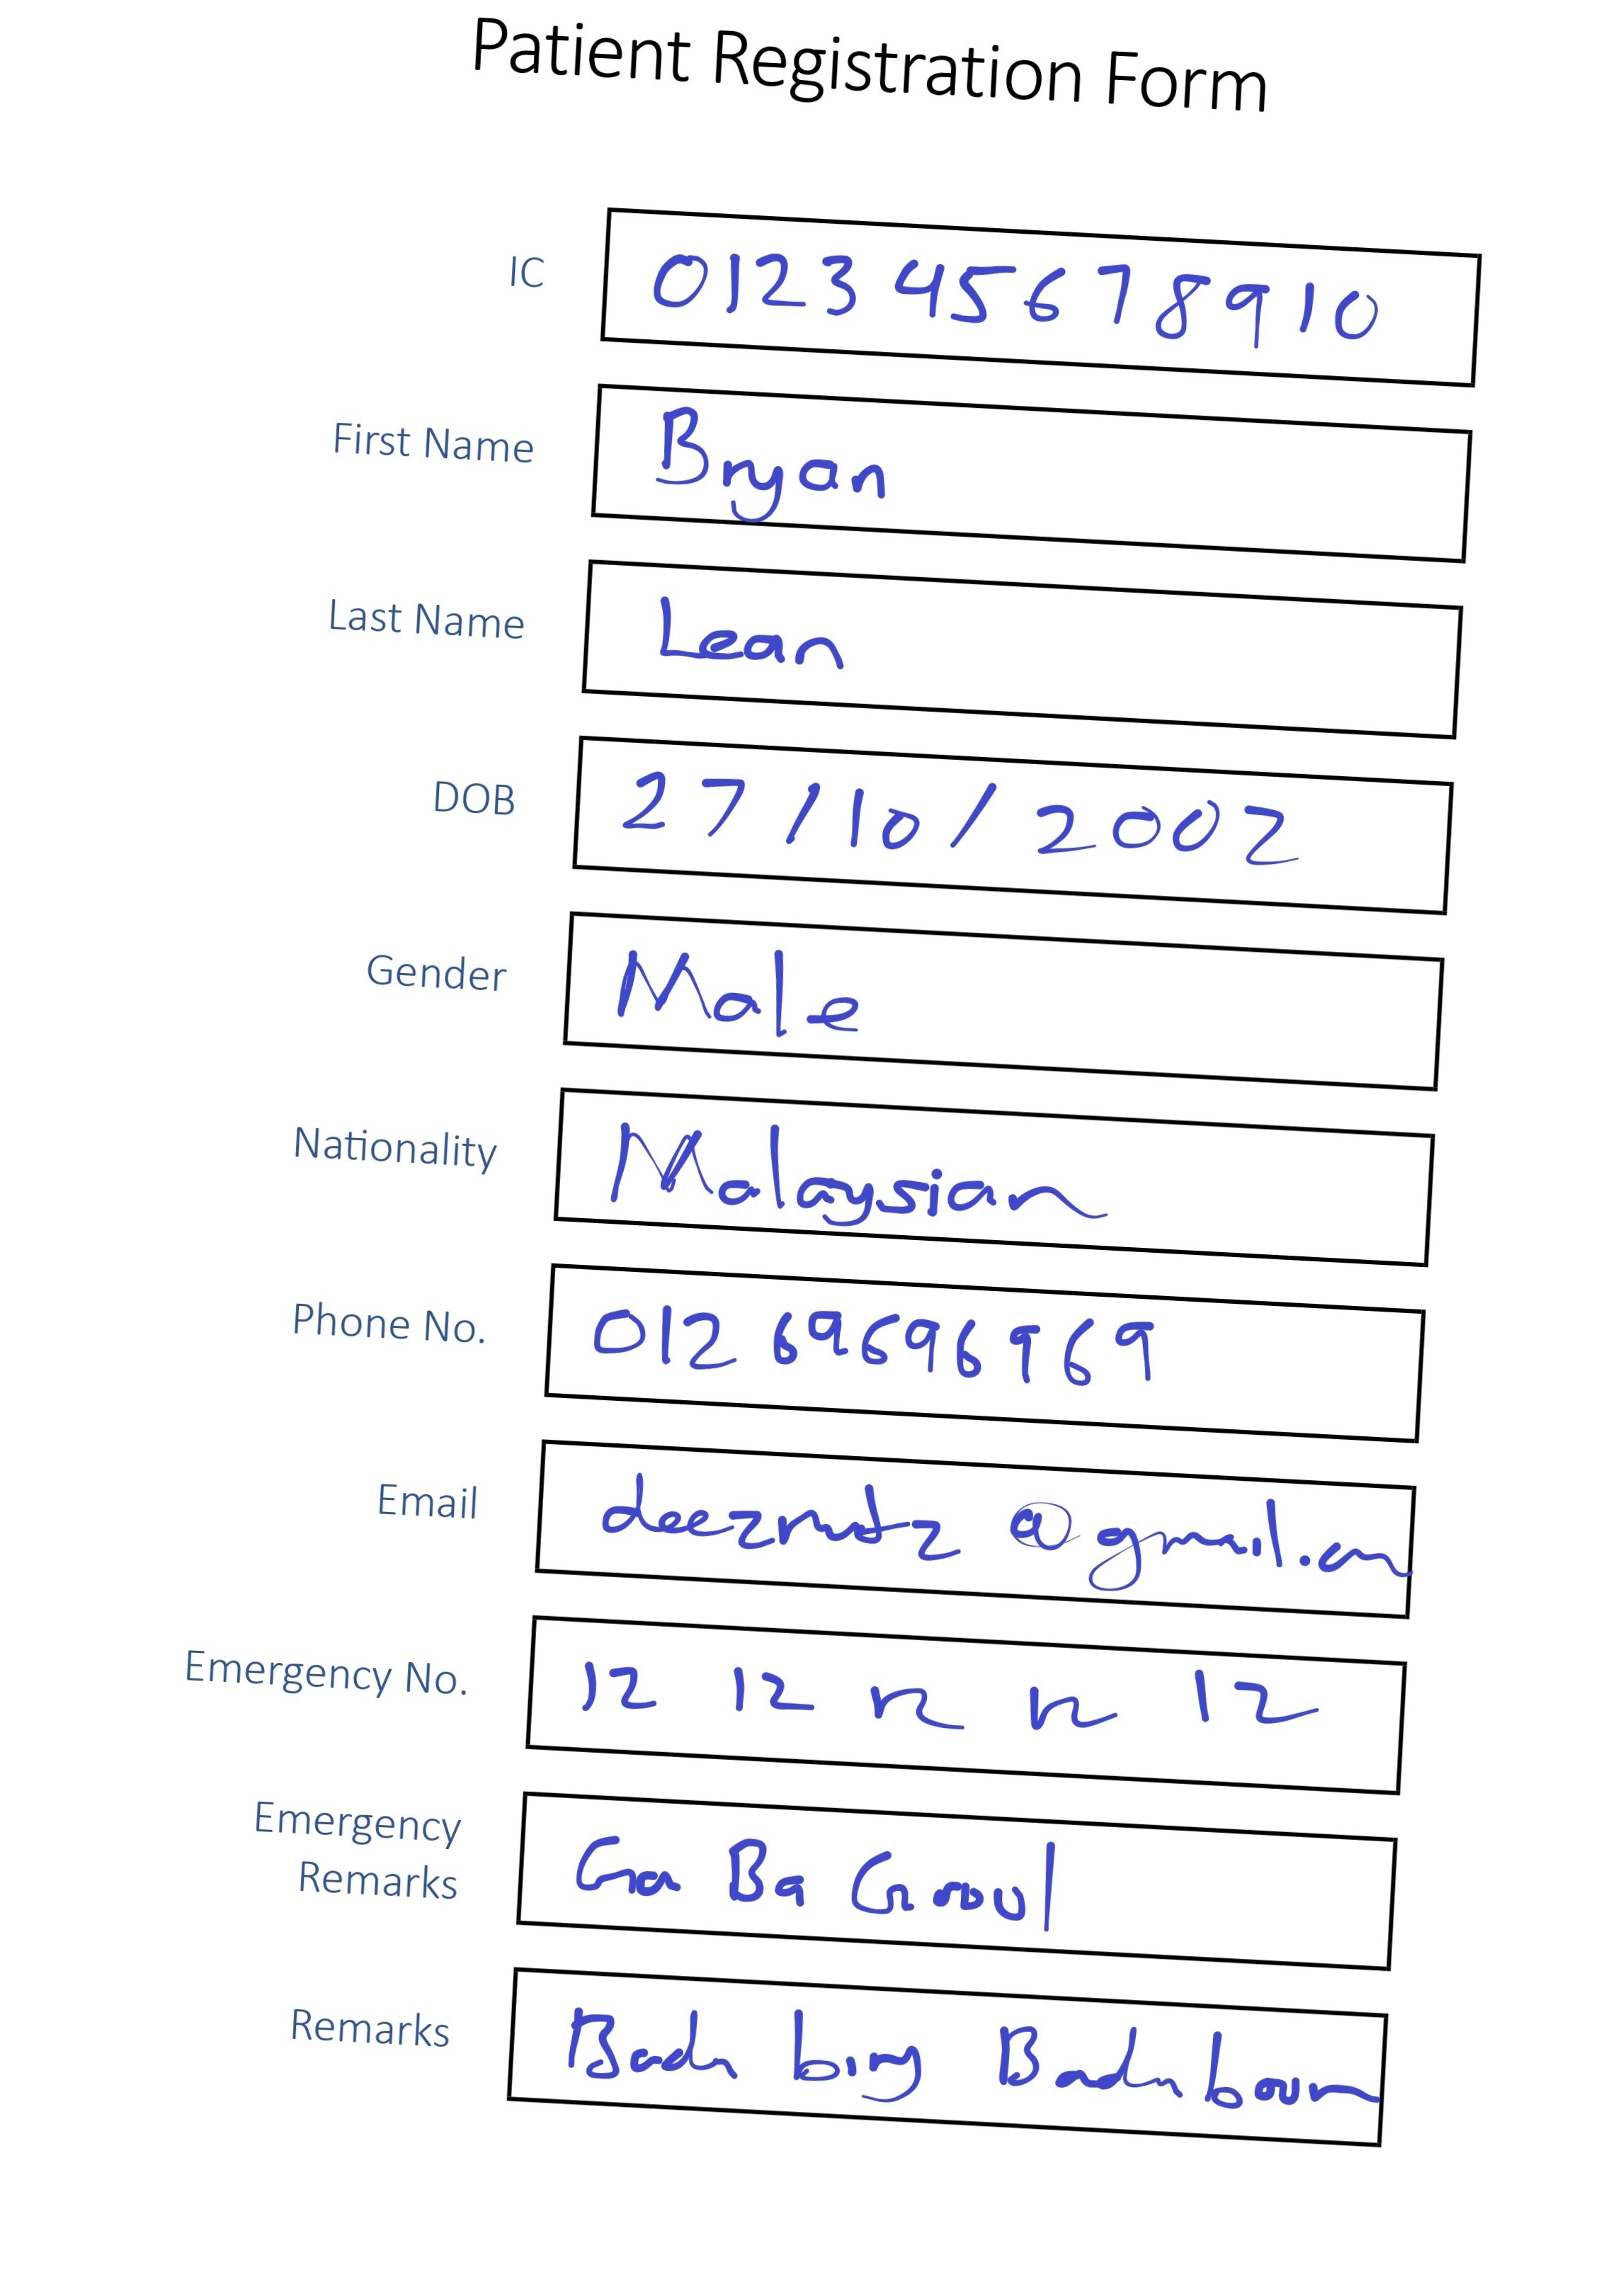 Patient Registration Form
IC 012345678910
First Name Bryan
Last Name Lean
DOB 27/10/2002
Gender Male
Nationality Malaysian
Phone No. 012 69696969
Email
Emergency No. 12 12 12 12 12
Emergency
Remarks
Remarks